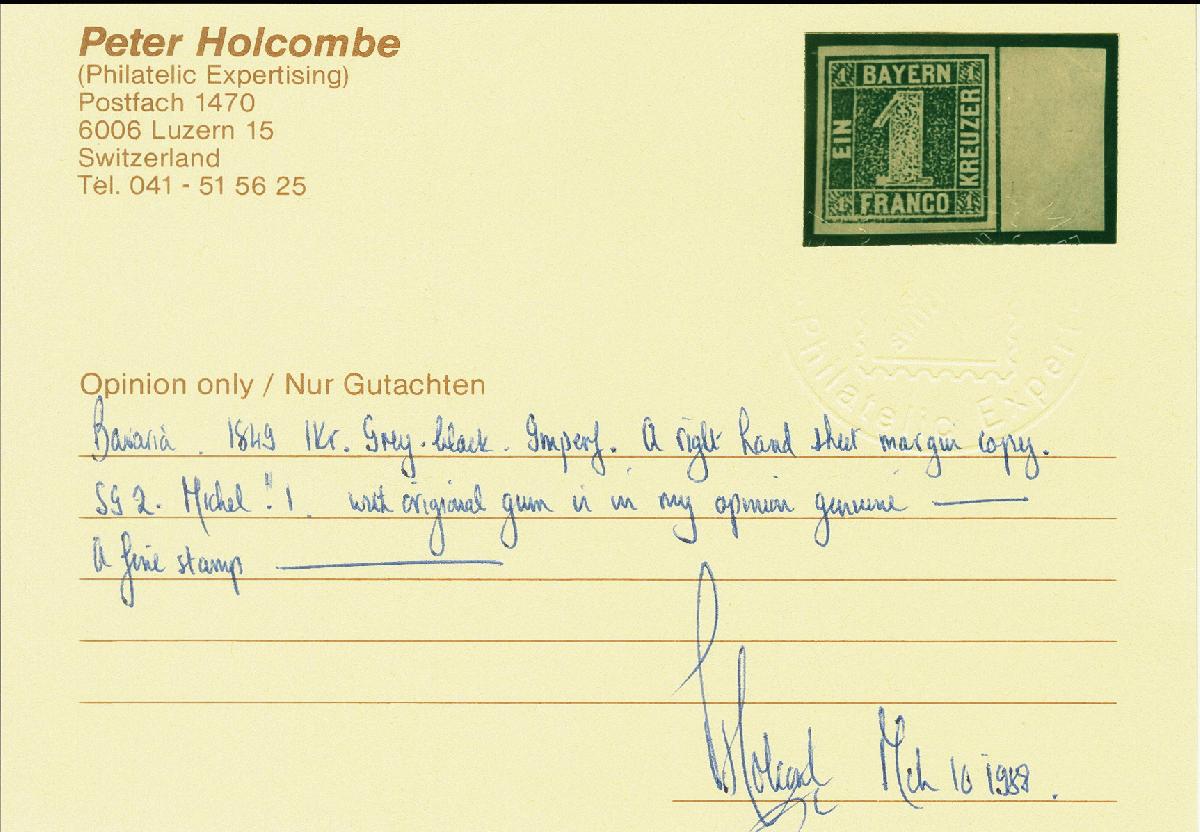 Peter Holcombe
(Philatelic Expertising)
Postfach 1470
6006 Luzern 15
Switzerland
Tel. 041 - 51 56 25
1 BAYERN 1
EIN
1
KREUZER
1 FRANCO 1
Philatelic Expert
Opinion only / Nur Gutachten
Bavaria. 1849 1Kr. Grey-black. Imperf. A right hand sheet margin copy.
SG 2. Michel 1. with original gum is in my opinion genuine
A fine stamp
Mch 10 1988.